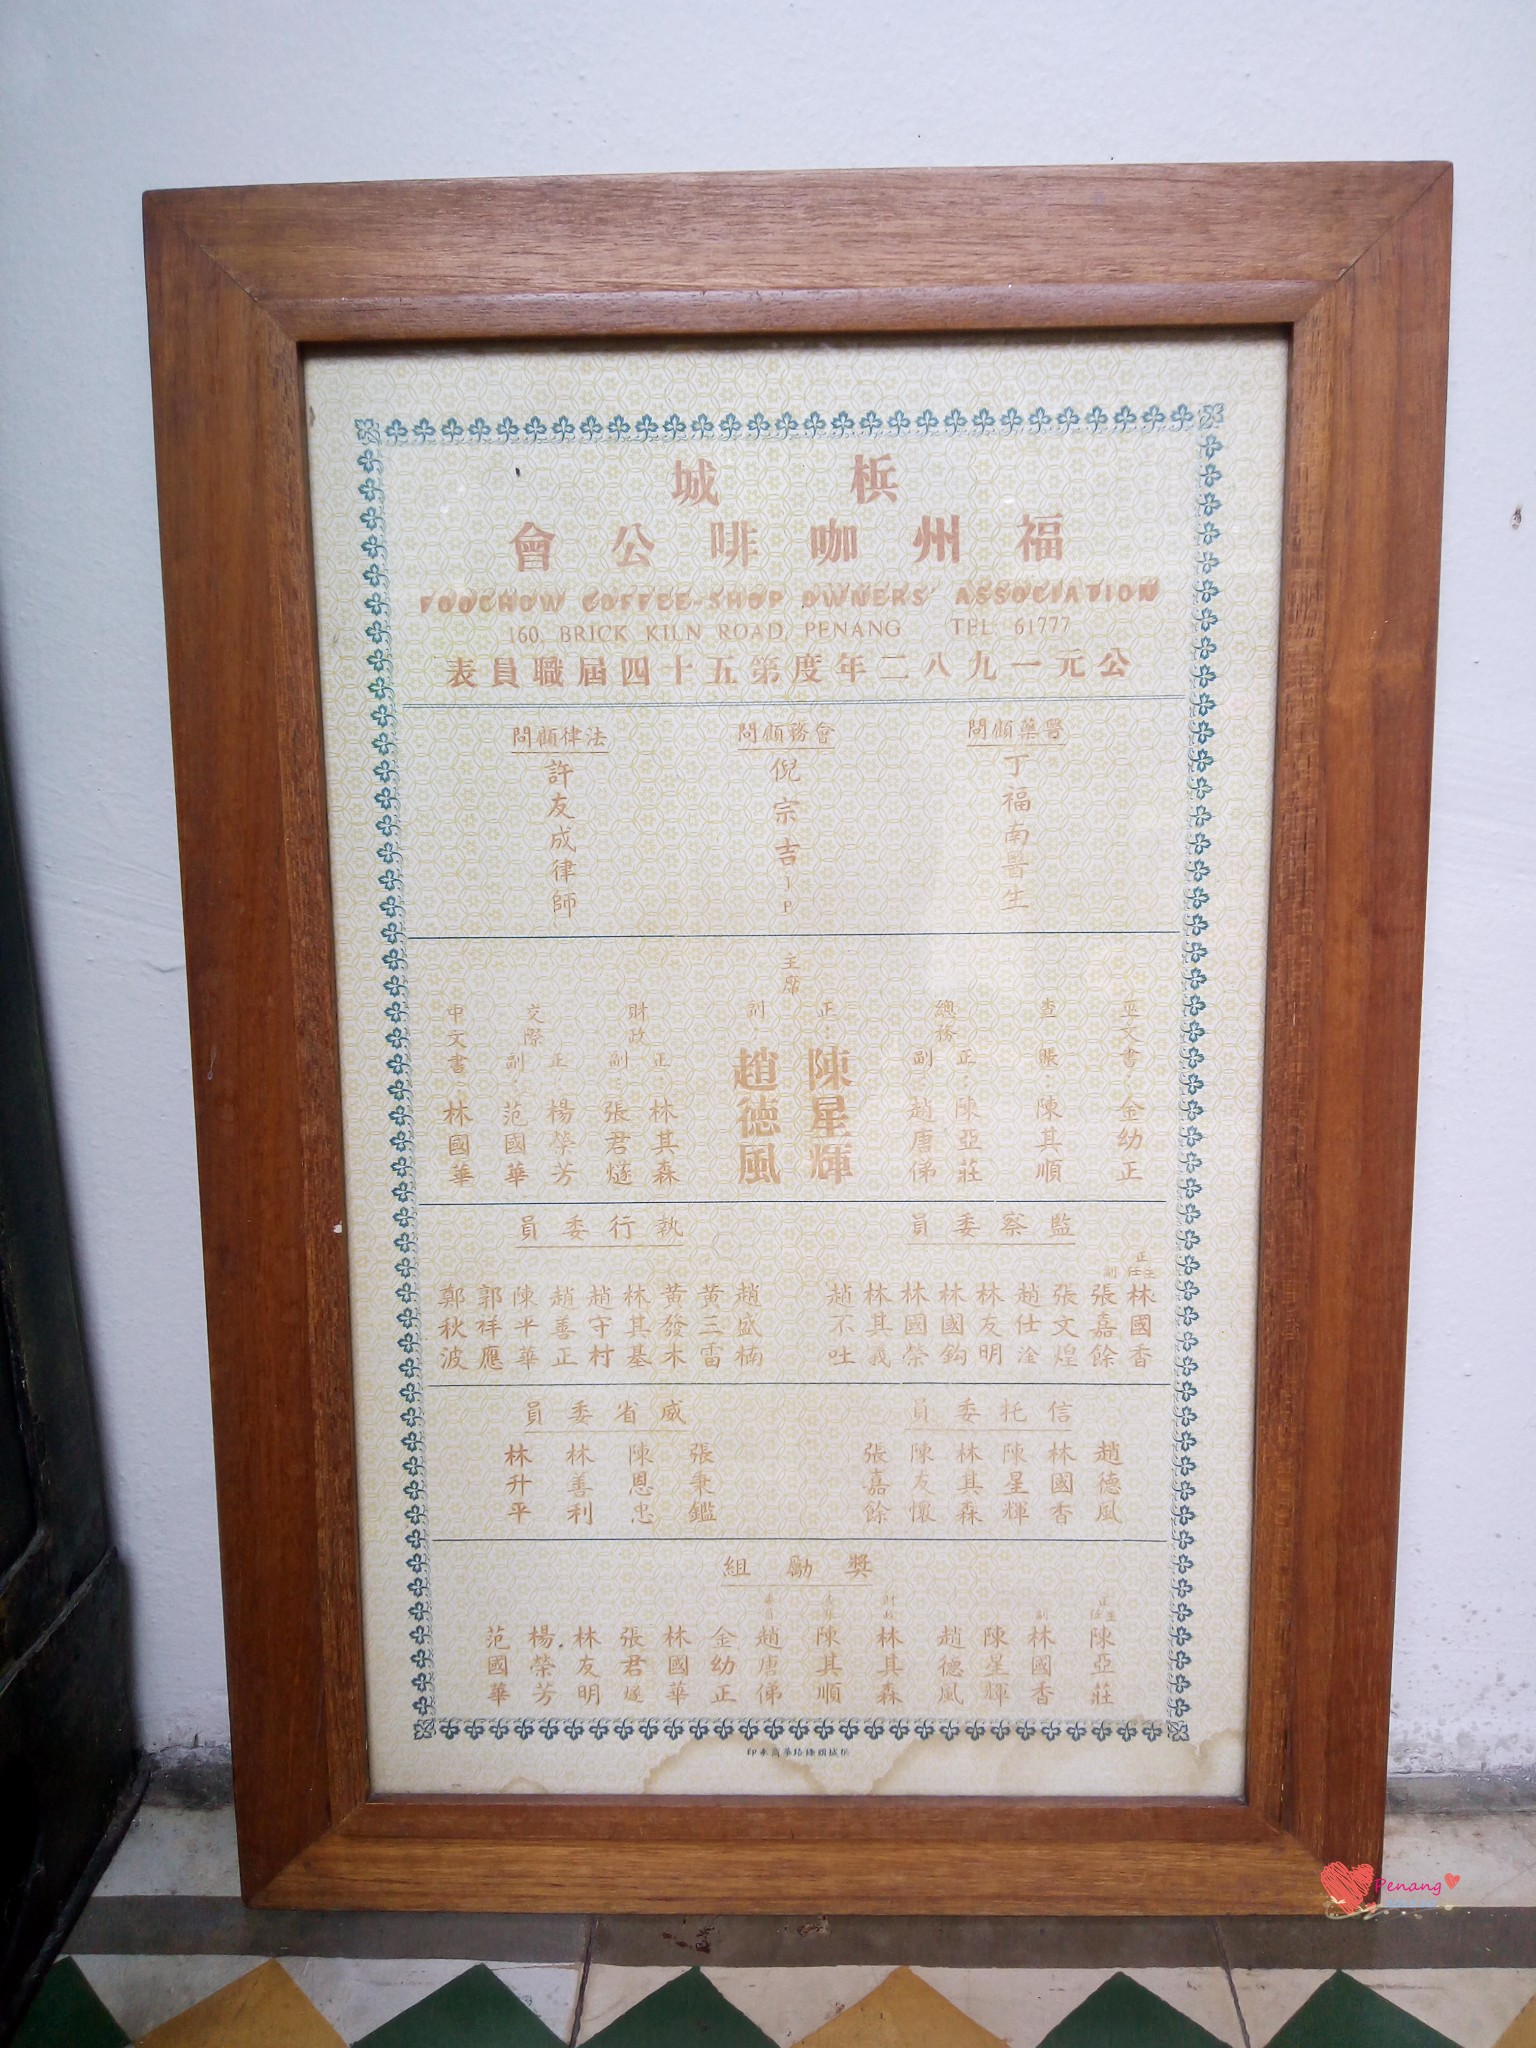 梹城
福州咖啡公會
FOOCHOW COFFEE-SHOP OWNERS' ASSOCIATION
160, BRICK KILN ROAD, PENANG TEL 61777
公元一九八二年度第五十四屆職員表
醫藥顧問
丁福南醫生
會務顧問
倪宗吉JP
法律顧問
許友成律師
主席
正：陳星輝
副：趙德風
巫文書：金幼正
查賬：陳其順
總務
正：陳亞莊
副：趙唐俤
財政
正：林其森
副：張君燧
交際
正：楊榮芳
副：范國華
中文書：林國華
監察委員
正主任
林國香
副
張嘉餘
張文煌
趙仕淦
林友明
林國鈞
林國榮
林其義
趙不吐
執行委員
趙盛楠
黃三雷
黃發木
林其基
趙守村
趙善正
陳平華
郭祥應
鄭秋波
信托委員
趙德風
林國香
陳星輝
林其森
陳友懷
張嘉餘
威省委員
張秉鑑
陳恩忠
林善利
林升平
獎勵組
正主任
陳亞莊
副
林國香
陳星輝
趙德風
財政
林其森
陳其順
委員
趙唐俤
金幼正
林國華
張君燧
林友明
楊榮芳
范國華
Penang